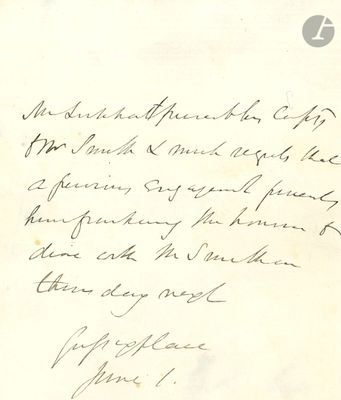 Mr Lockhart presents his Compts
to Mr Smith & much regrets that
a previous engagement prevents
him from having the honour to
dine with Mr Smith on
Thursday next
Sussex place
June 1.